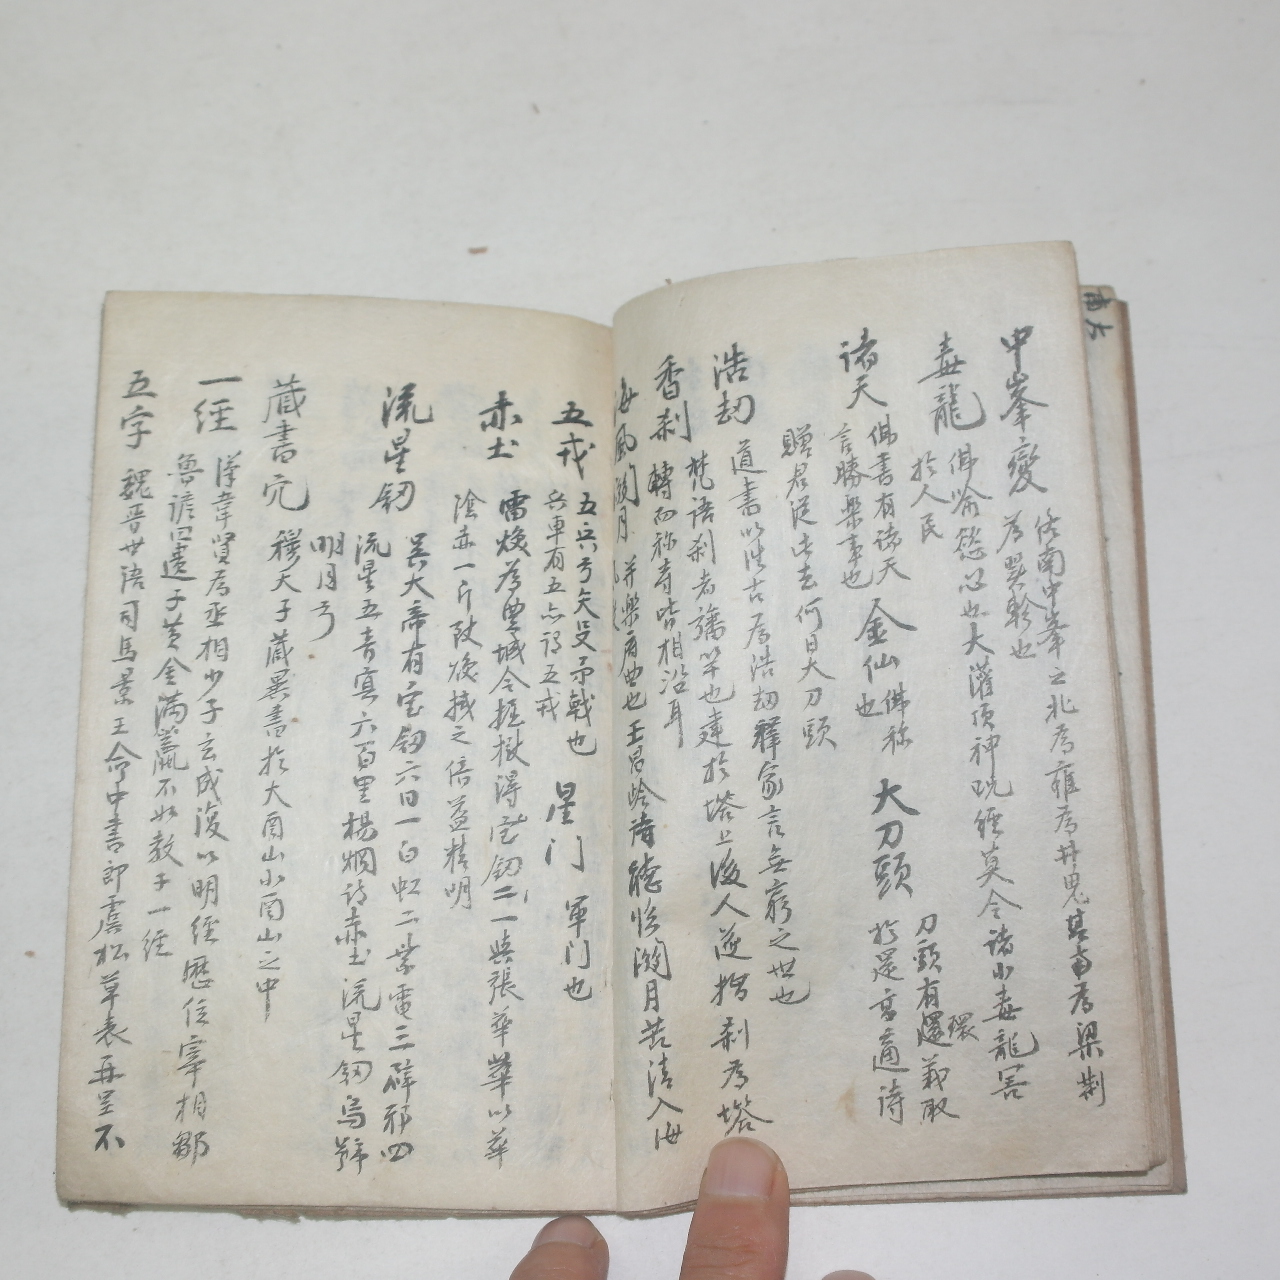 中峯變 終南中峯之北為雍為井鬼其南為梁荆
為翼軫也
毒龍 佛喻慾心也大灌頂神呪經莫令諸小毒龍害
於人民
諸天 佛書有諸天
言勝樂事也
金仙 佛称
也
大刀頭 刀頭有還環義取
於還高適詩
贈君從此去何日大刀頭
浩劫 道書以浩古為浩劫釋家言無窮之世也
香刹 梵語刹者旛竿也建於塔上後人遂指刹為塔
轉而称寺皆相沿耳
海風 月 并樂府曲也王昌齡詩聽 月苦清入海
五戎 五兵弓矢殳矛戟也
兵車有五亦謂五戎
星门 军门也
赤土 雷煥為豐城令掘獄得宝釼二一與張華華以華
陰赤一斤致煥拭之倍益精明
流星釼 吴大帝有宝釼六曰一白虹二紫電三辟邪四
流星五青冥六百里楊烱詩赤土流星釼烏號
明月弓
蔵書穴 穆天子蔵異書於大酉山小酉山之中
一經 漢韋賢為丞相少子玄成復以明經歷位宰相鄒
魯諺曰遺子黃金滿籯不如教子一經
五字 魏晋世語司馬景王命中書郎虞松草表再呈不
南 大